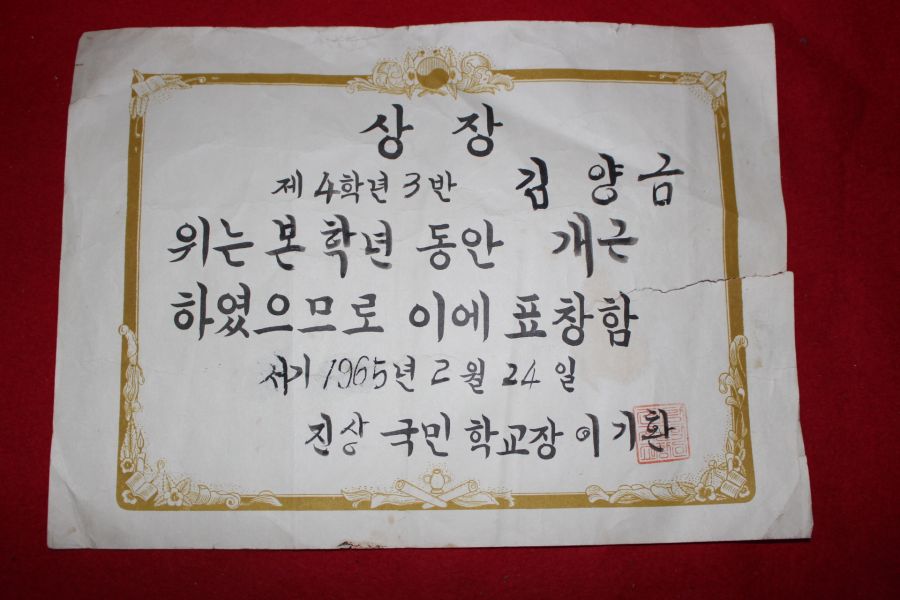 상장
제 4학년 3반 김양금
위는 본 학년 동안 개근
하였으므로 이에 표창함
서기 1965년 2월 24일
진상 국민 학교장 이기환